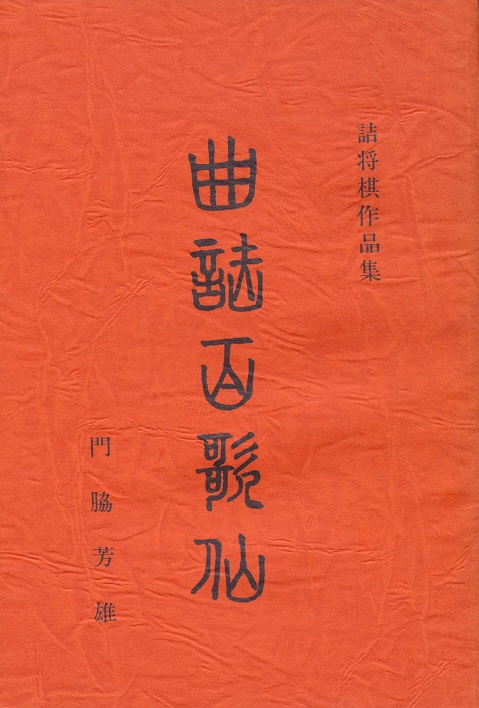 詰将棋作品集
曲詰百歌仙
門脇芳雄